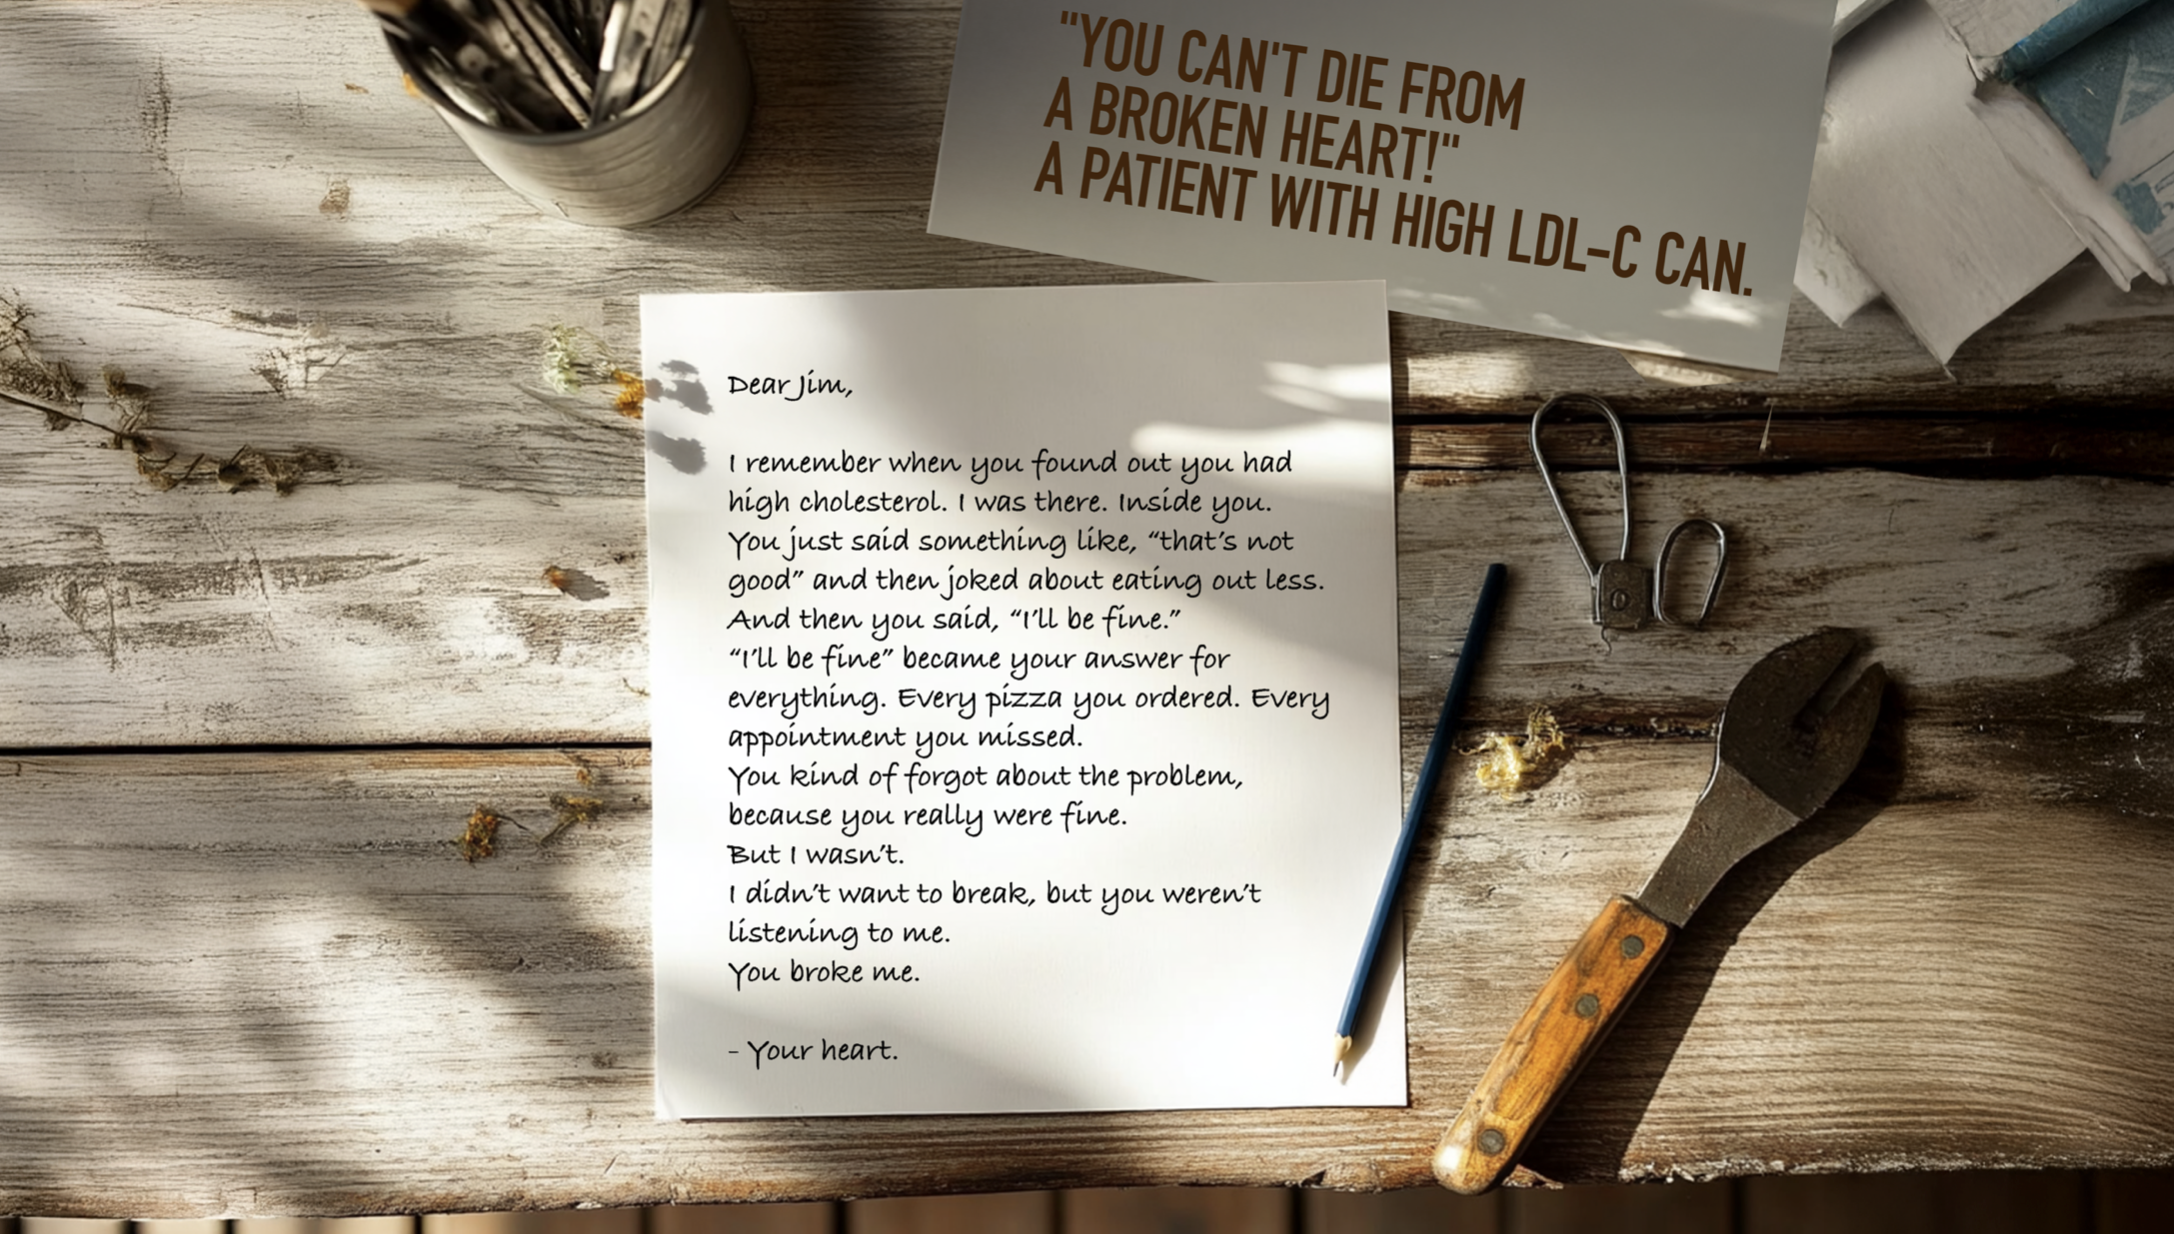 "YOU CAN'T DIE FROM
A BROKEN HEART!"
A PATIENT WITH HIGH LDL-C CAN.
Dear Jim,
I remember when you found out you had
high cholesterol. I was there. Inside you.
You just said something like, “that’s not
good” and then joked about eating out less.
And then you said, “I’ll be fine.”
“I’ll be fine” became your answer for
everything. Every pizza you ordered. Every
appointment you missed.
You kind of forgot about the problem,
because you really were fine.
But I wasn’t.
I didn’t want to break, but you weren’t
listening to me.
You broke me.
- Your heart.